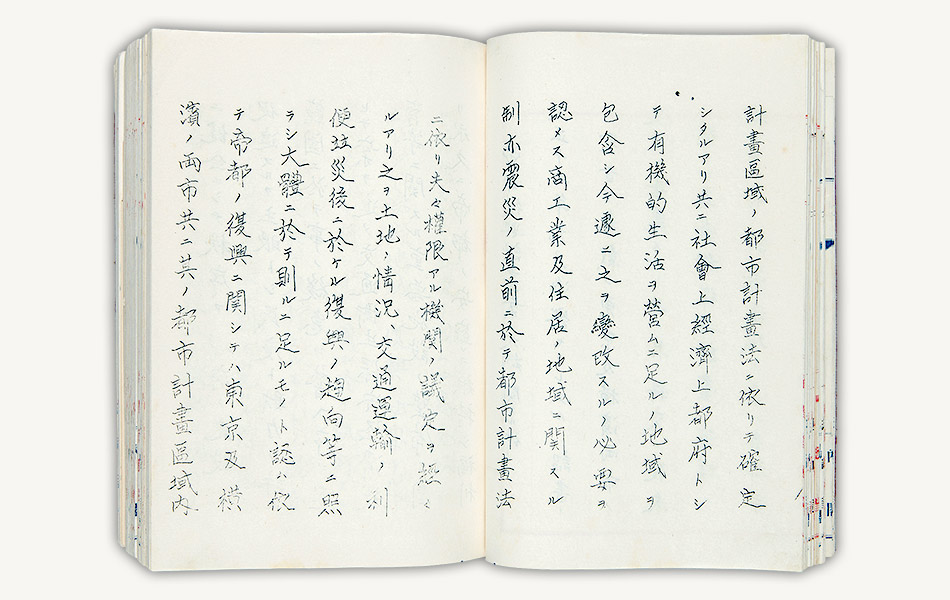 計畫區域ノ都市計畫法ニ依リテ確定
シタルアリ共ニ社會上經濟上都府トシ
テ有機的生活ヲ營ムニ足ルノ地域ヲ
包含シ今遽ニ之ヲ變改スルノ必要ヲ
認メス商工業及住居ノ地域ニ關スル
制亦震災ノ直前ニ於テ都市計畫法
ニ依リ夫々權限アル機關ノ議定ヲ経タ
ルアリ之ヲ土地ノ情况、交通運輸ノ利
便竝災後ニ於ケル復興ノ趨向等ニ照
ラシ大體ニ於テ則ルニ足ルモノト認ム依
テ帝都ノ復興ニ関シテハ東京及横
濱ノ両市共ニ其ノ都市計畫區域内